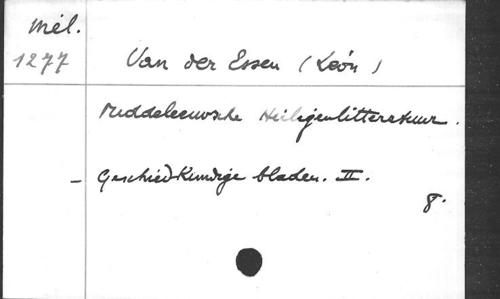 Mél.
1277
Van der Essen (Léon)
Middeleeuwsche Heiligenlitteratuur.
- Geschiedkundige bladen. II.
8.